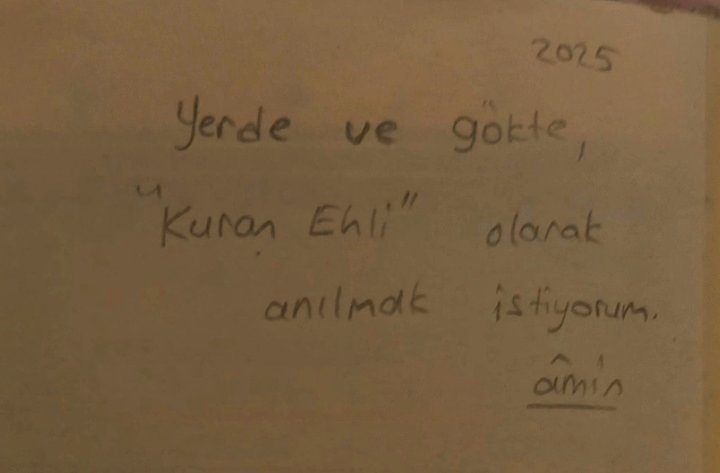 2025
Yerde ve gökte,
"Kuran Ehli" olarak
anılmak istiyorum.
âmin